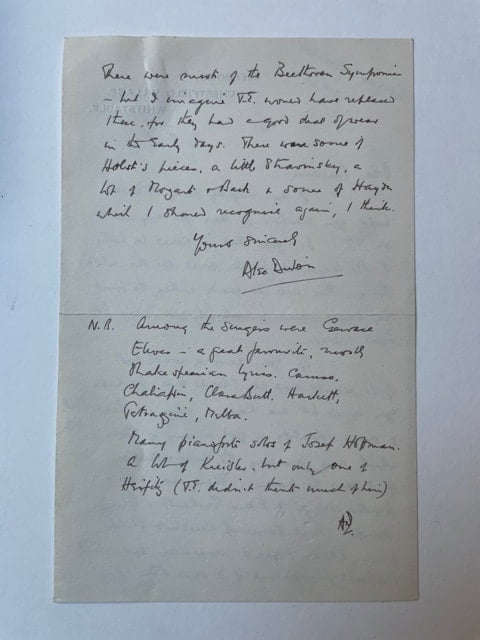 There were most of the Beethoven Symphonies
- but I imagine T.E. would have replaced
these, for they had a good deal of wear
in the early days. There were some of
Holst's pieces, a little Stravinsky, a
lot of Mozart & Bach & some of Haydn
which I should recognise again, I think.
Yours sincerely
Alec Dixon
N.B. Among the singers were Gervase
Elwes - a great favourite, mostly
Shakespearian lyrics. Caruso.
Chaliapin, Clara Butt. Hackett,
Tetrazzini, Melba.
Many pianoforte solos of Josef Hofman.
A lot of Kreisler, but only one of
Heifitz (T.E. didn't think much of him)
AD